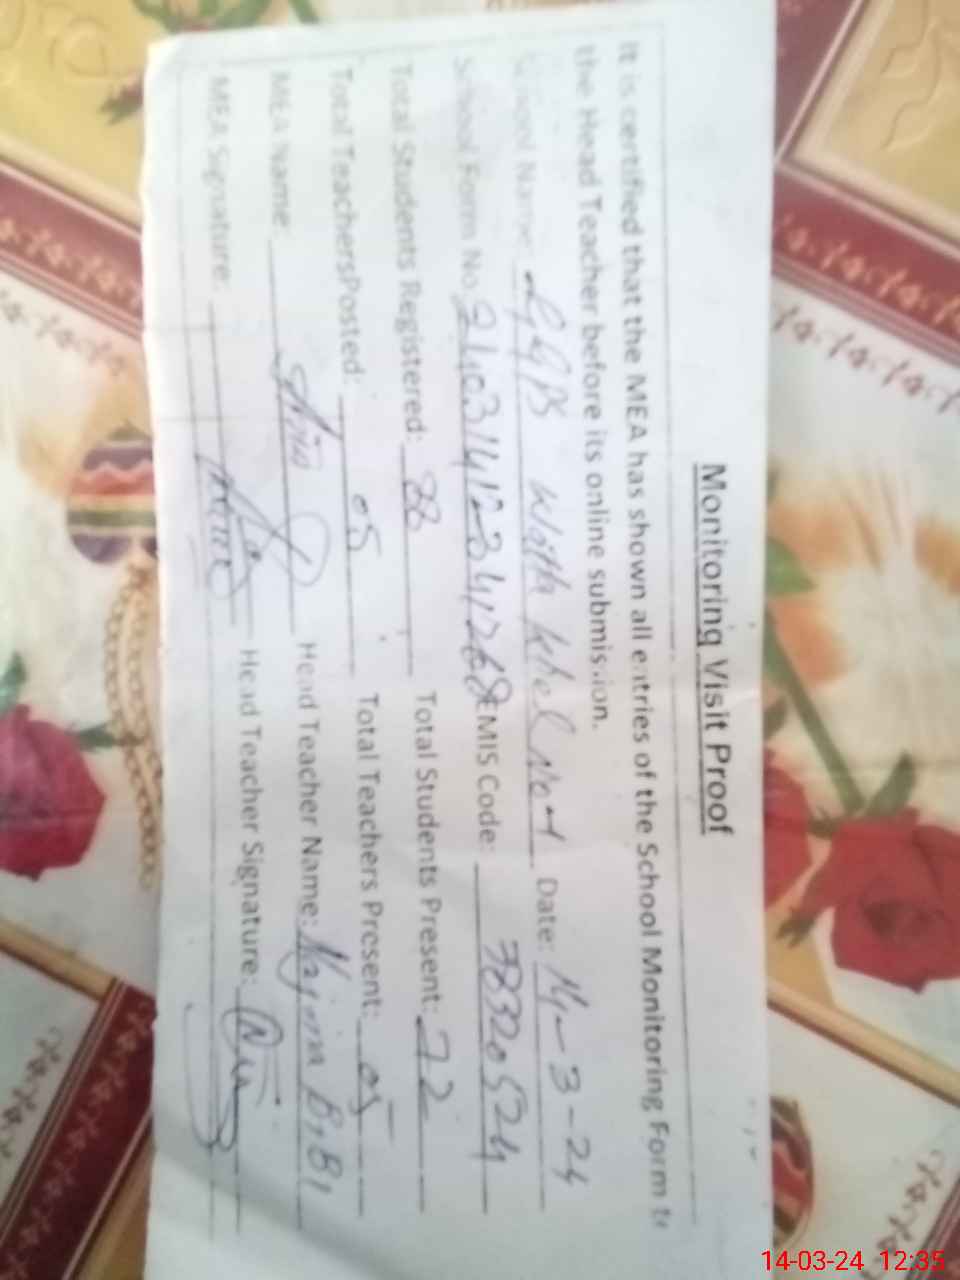 Monitoring Visit Proof
It is certified that the MEA has shown all entries of the School Monitoring Form to
the Head Teacher before its online submission.
School Name: GGPS Khel No-1 Date: 14-3-24
School Form No. EMIS Code: 38320524
Total Students Registered: 88 Total Students Present: 72
Total TeachersPosted: 05 Total Teachers Present: 05
MEA Name: Head Teacher Name: Najma BiBi
MEA Signature: Head Teacher Signature:
14-03-24 12:35